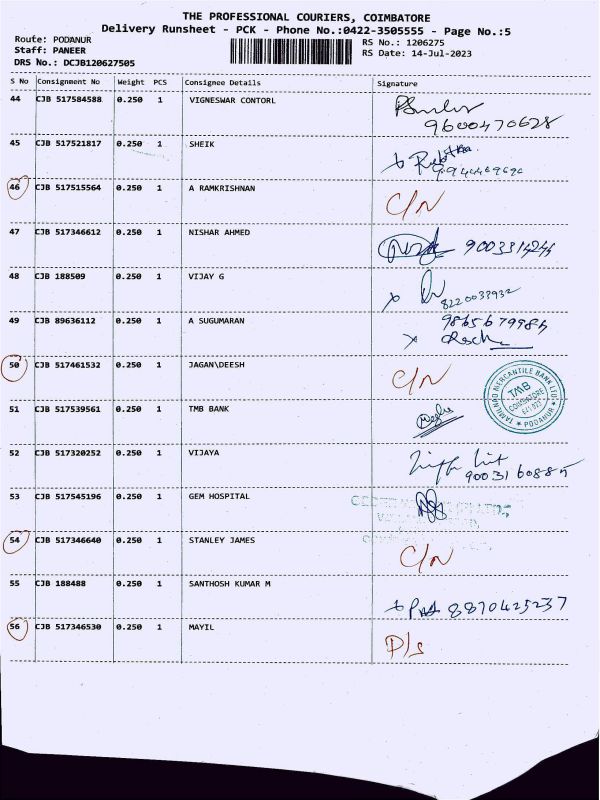 THE PROFESSIONAL COURIERS, COIMBATORE
Delivery Runsheet - PCK - Phone No.:0422-3505555 - Page No.:5
Route: PODANUR
Staff: PANEER
DRS No.: DCJB120627505
RS No.: 1206275
RS Date: 14-Jul-2023
S No Consignment No Weight PCS Consignee Details Signature
44 CJB 517584588 0.250 1 VIGNESWAR CONTORL
9600470628
45 CJB 517521817 0.250 1 SHEIK
46 CJB 517515564 0.250 1 A RAMKRISHNAN C/N
47 CJB 517346612 0.250 1 NISHAR AHMED
48 CJB 188509 0.250 1 VIJAY G
8220033932
49 CJB 89636112 0.250 1 A SUGUMARAN
50 CJB 517461532 0.250 1 JAGAN\DEESH C/N
TAMILNAD MERCANTILE BANK LTD
TMB
COIMBATORE
PODANUR
51 CJB 517539561 0.250 1 TMB BANK
52 CJB 517320252 0.250 1 VIJAYA
53 CJB 517545196 0.250 1 GEM HOSPITAL
54 CJB 517346640 0.250 1 STANLEY JAMES C/N
55 CJB 188488 0.250 1 SANTHOSH KUMAR M
8870425237
56 CJB 517346530 0.250 1 MAYIL P/s